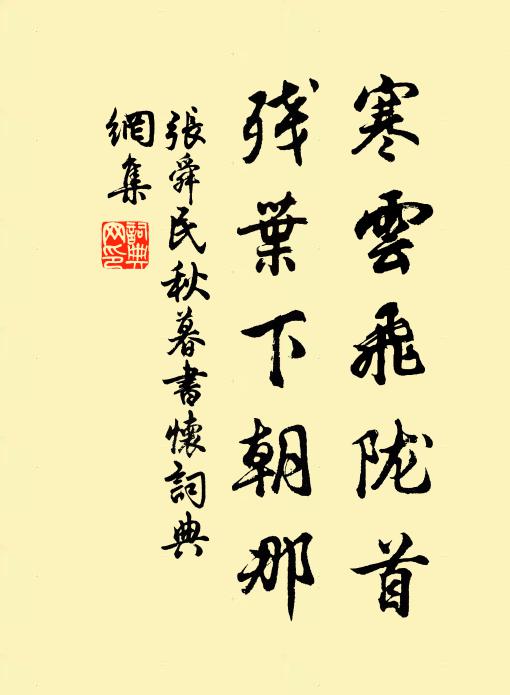 寒雲飛陇首
残葉下朝那
張舜民秋暮書懷詞典
網集
詞典
网印